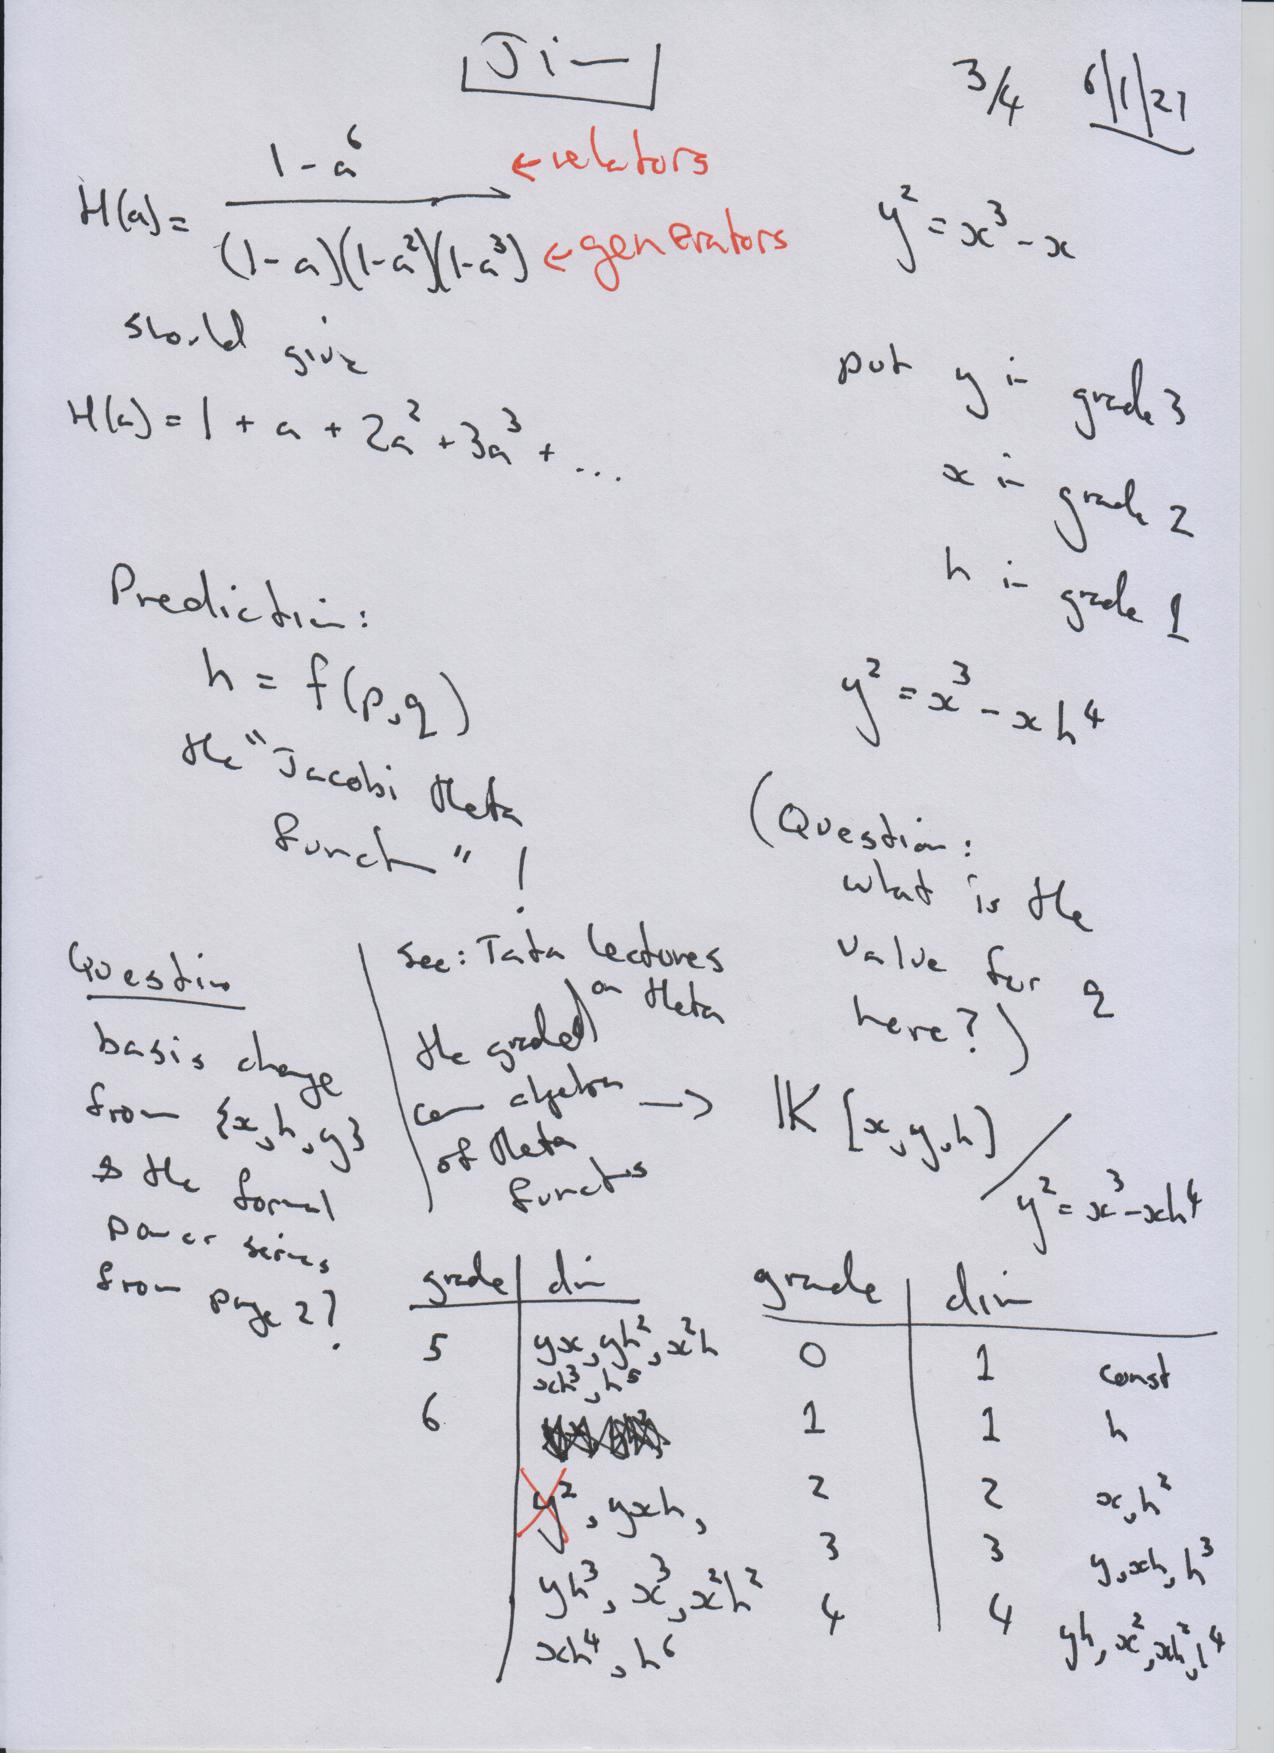 Jim
3/4 6/1/21
H(a) = 1-a⁶ / (1-a)(1-a²)(1-a³)
← relators
← generators
should give
H(a) = 1 + a + 2a² + 3a³ + ...
Prediction:
h = f(p,q)
the "Jacobi theta
funct" !
y² = x³ - x
put y in grade 3
x in grade 2
h in grade 1
y² = x³ - xh⁴
(Question:
what is the
value for q
here?)
Question
basis change
from {x,h,y}
to the formal
power series
from page 2?
see: Tata lectures
on theta
the graded
com algebra
of theta
functs
→ K[x,y,h] / y² = x³ - xh⁴
grade dim
5 yx, yh², x²h
xh³, h⁵
6
y², yxh,
yh³, x³, x²h²
xh⁴, h⁶
grade dim
0 1 const
1 1 h
2 2 x, h²
3 3 y, xh, h³
4 4 yh, x², xh², h⁴